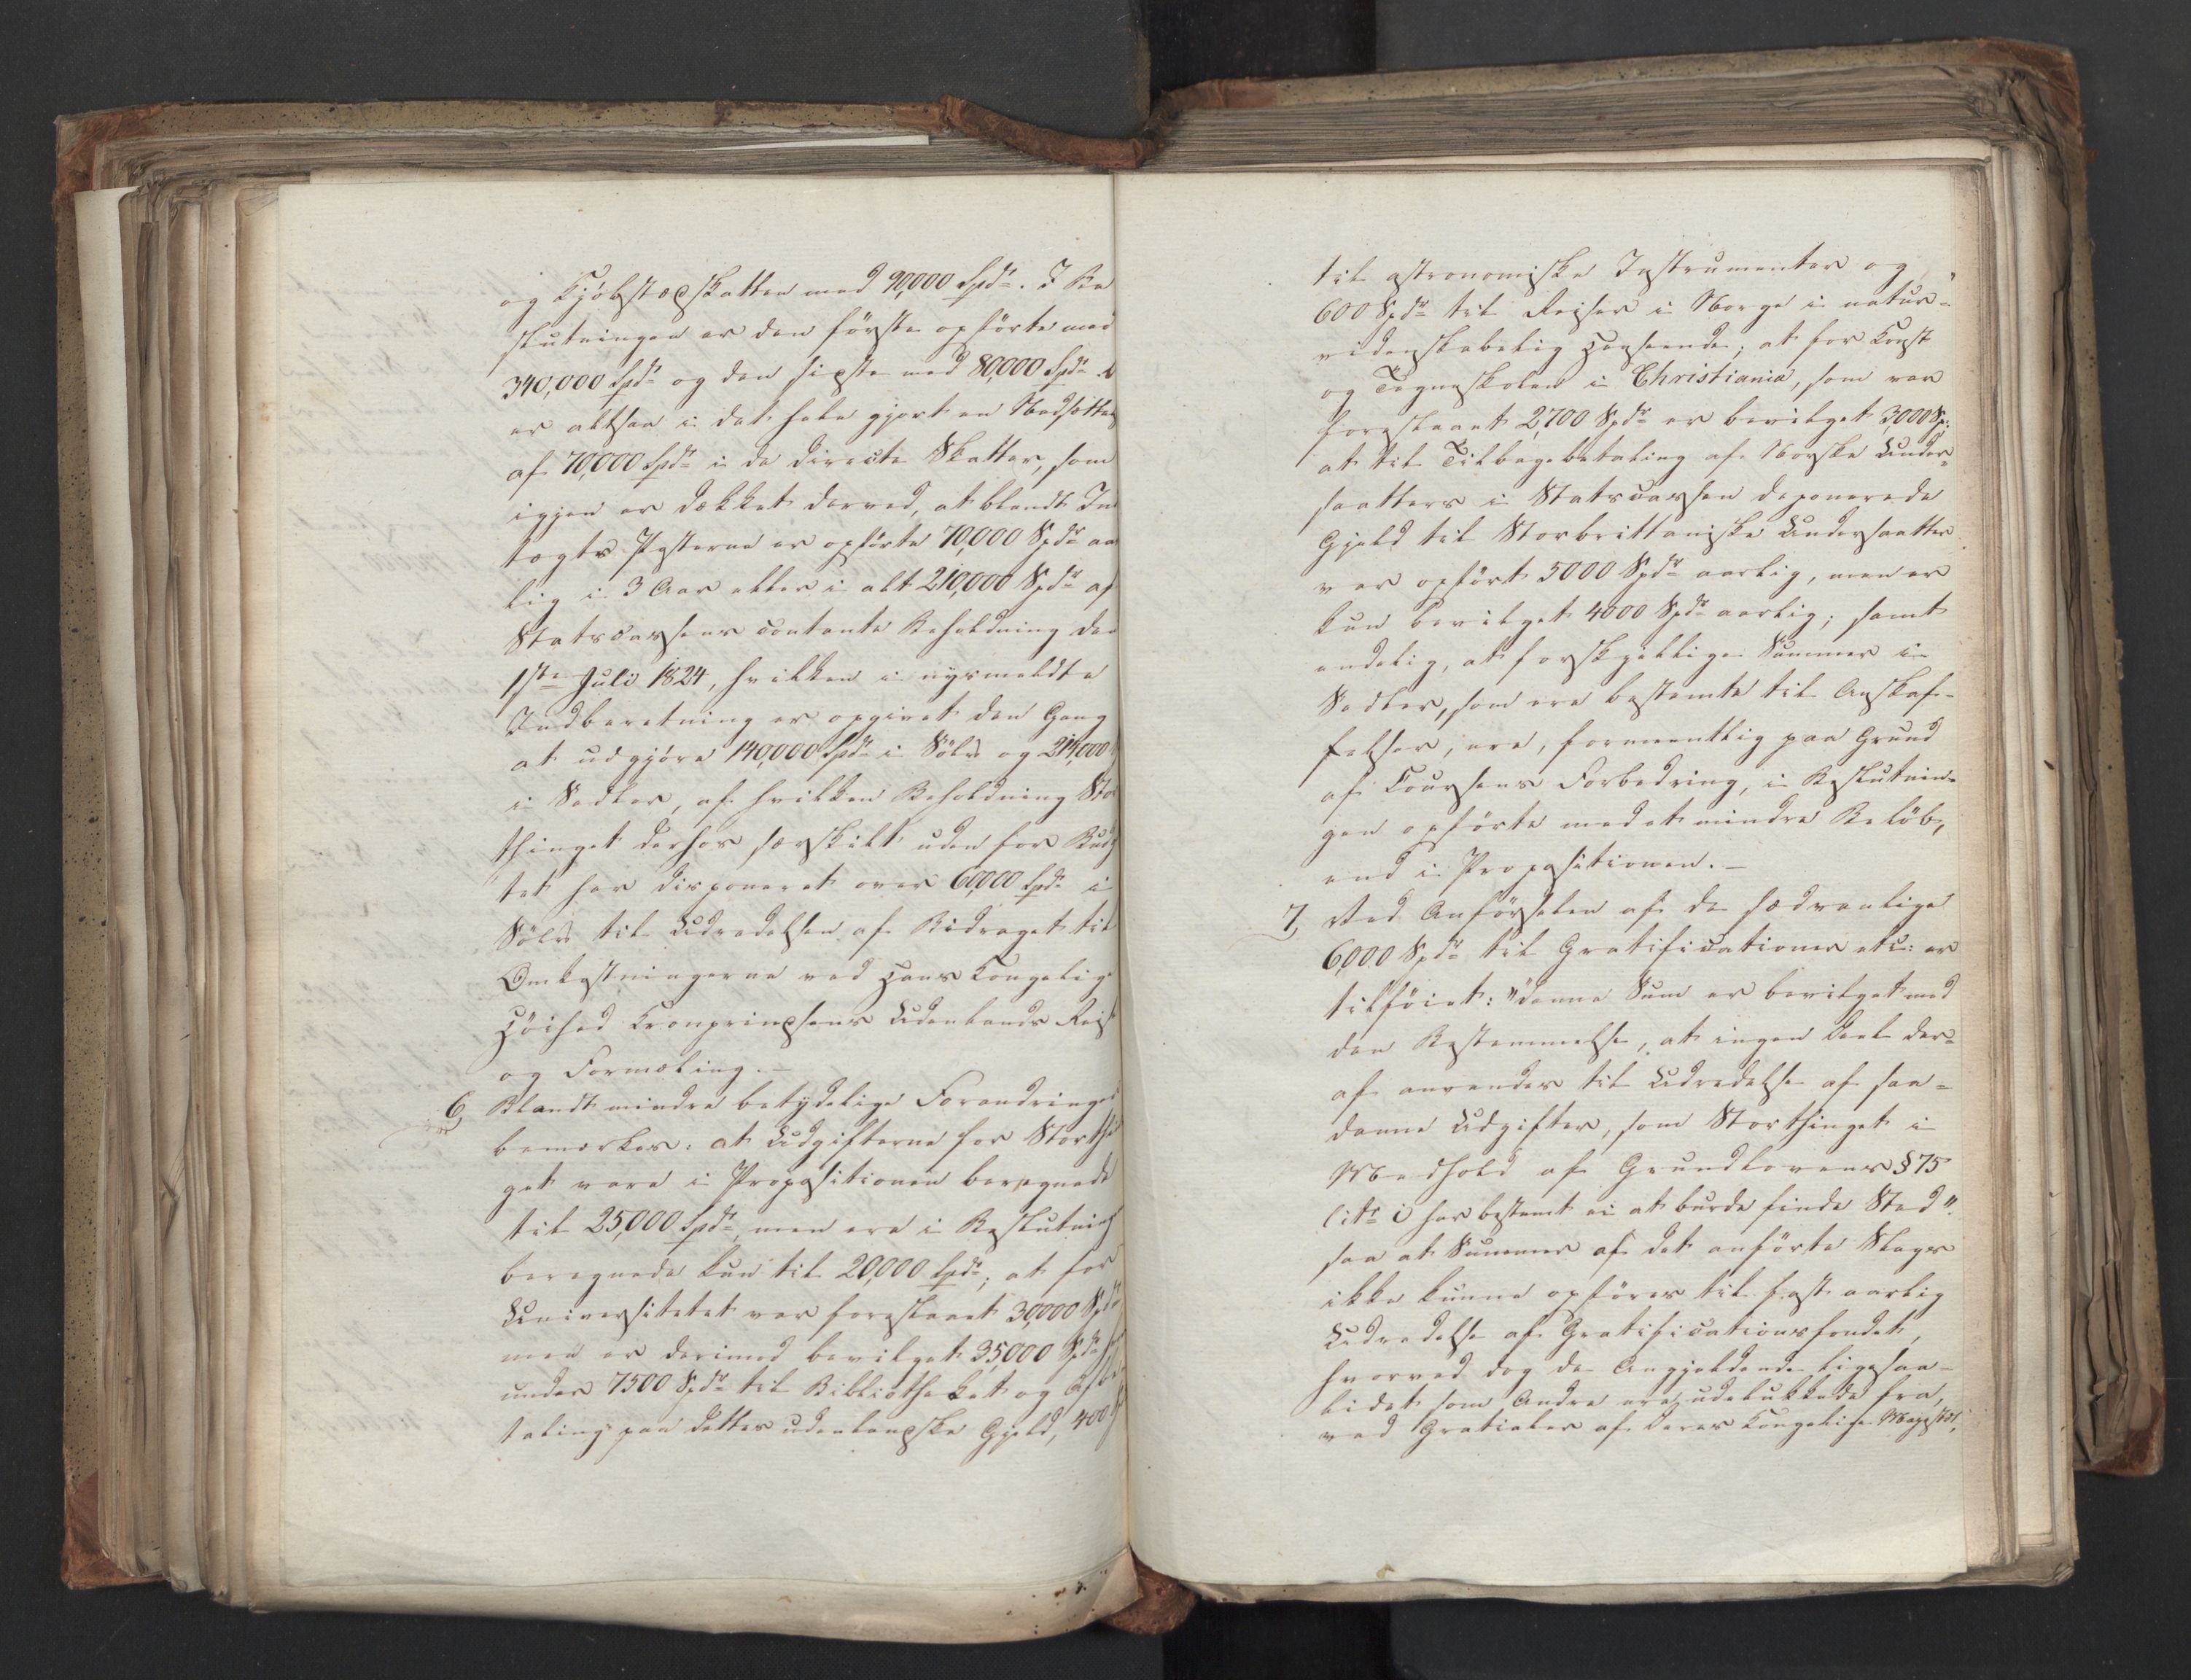 og Kjøbstædskatten med 90,000 Spdr. I Be
slutningen er den første opførte med
340,000 Spdr og den sidste med 80,000 Spdr.
er altsaa i det hele gjort en Nedsættelse
af 70,000 Spdr i de directe Skatter, som
igjen er dækket derved, at blandt Ind
tægts Posterne er opførte 70,000 Spdr aar
lig i 3 Aar eller i alt 210,000 Spdr af
Statscassens contante Beholdning den
1ste Juli 1824, hvilken i nysmeldte
Indberetning er opgivet den Gang
at udgjøre 140,000 Spdr i Sølv og 214,000
i Sedler, af hvilken Beholdning Stor
thinget derhos særskilt uden for Budg
tet har disponeret over 60,000 Spdr i
Sølv til Udredelsen af Bidraget til
Omkostningerne ved Hans Kongelige
Høihed Kronprindsens Udenlands Reise
og Formæling. —
6, Blandt mindre betydelige Forandringer
bemærkes: at Udgifterne for Storthin
get vare i Propositionen beregnede
til 25,000 Spdr, men ere i Beslutningen
beregnede kun til 20,000 Spdr; at for
Universitetet var foreslaaet 30,000 Spdr
men er derimod bevilget 35,000 Spdr her
under 7500 Spdr til Bibliotheket og Afbe
taling paa dettes udenlandske Gjeld, 400 Sp
til astronomiske Instrumenter og
600 Spdr til Reiser i Norge i natur-
videnskabelig Henseende; at for Konst
og Tegneskolen i Christiania, som var
foreslaaet 2,700 Spdr er bevilget 3,000 Sp:
at til Tilbagebetaling af Norske Under-
saatters i Statscassen deponerede
Gjeld til Storbrittaniske Undersaatter
var opført 5000 Spdr aarlig, men er
kun bevilget 4000 Spdr aarlig; samt
endelig, at forskjellige Summer i
Sedler, som ere bestemte til Anskaf-
felser, ere, formeentlig paa Grund
af Coursens Forbedring, i Beslutnin-
gen opførte med et mindre Beløb,
end i Propositionen. —
7, Ved Anførselen af de sædvanlige
6,000 Spdr til Gratificationer etc: er
tilføiet: "denne Sum er bevilget med
den Bestemmelse, at ingen Deel der-
af anvendes til Udredelse af saa-
danne Udgifter, som Storthinget i
Medhold af Grundlovens § 75
litr i har bestemt ei at burde finde Sted",
saa at Summer af det anførte Slags
ikke kunne opføres til fast aarlig
Udredelse af Gratificationsfondet,
hvorved dog de Angjeldende ligesaa-
lidet som Andre ere udelukkede fra,
ved Gratialer af Deres Kongelige Majestæt,